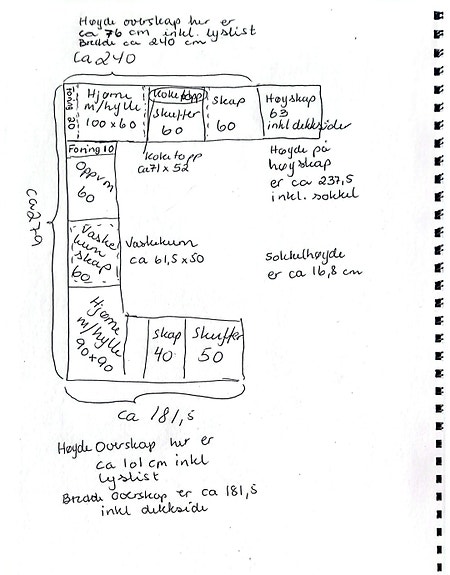 Høyde overskap her er
ca 76 cm inkl. lyslist
Bredde ca 240 cm
ca 240
Foring 20
Hjørne
m/hylle
100 x 60
Koketopp
skuffer
60
skap
60
Høyskap
63
inkl dekksider
Foring 10
Koketopp
ca 71 x 52
Høyde på
høyskap
er ca 237,5
inkl. sokkel
Oppvm
60
ca 279
Vaske
kum
skap
60
Vaskekum
ca 61,5 x 50
Sokkelhøyde
er ca 16,8 cm
Hjørne
m/hylle
90 x 90
skap
40
Skuffer
50
ca 181,5
Høyde Overskap her er
ca 101 cm inkl
lyslist
Bredde overskap er ca 181,5
inkl dekkside